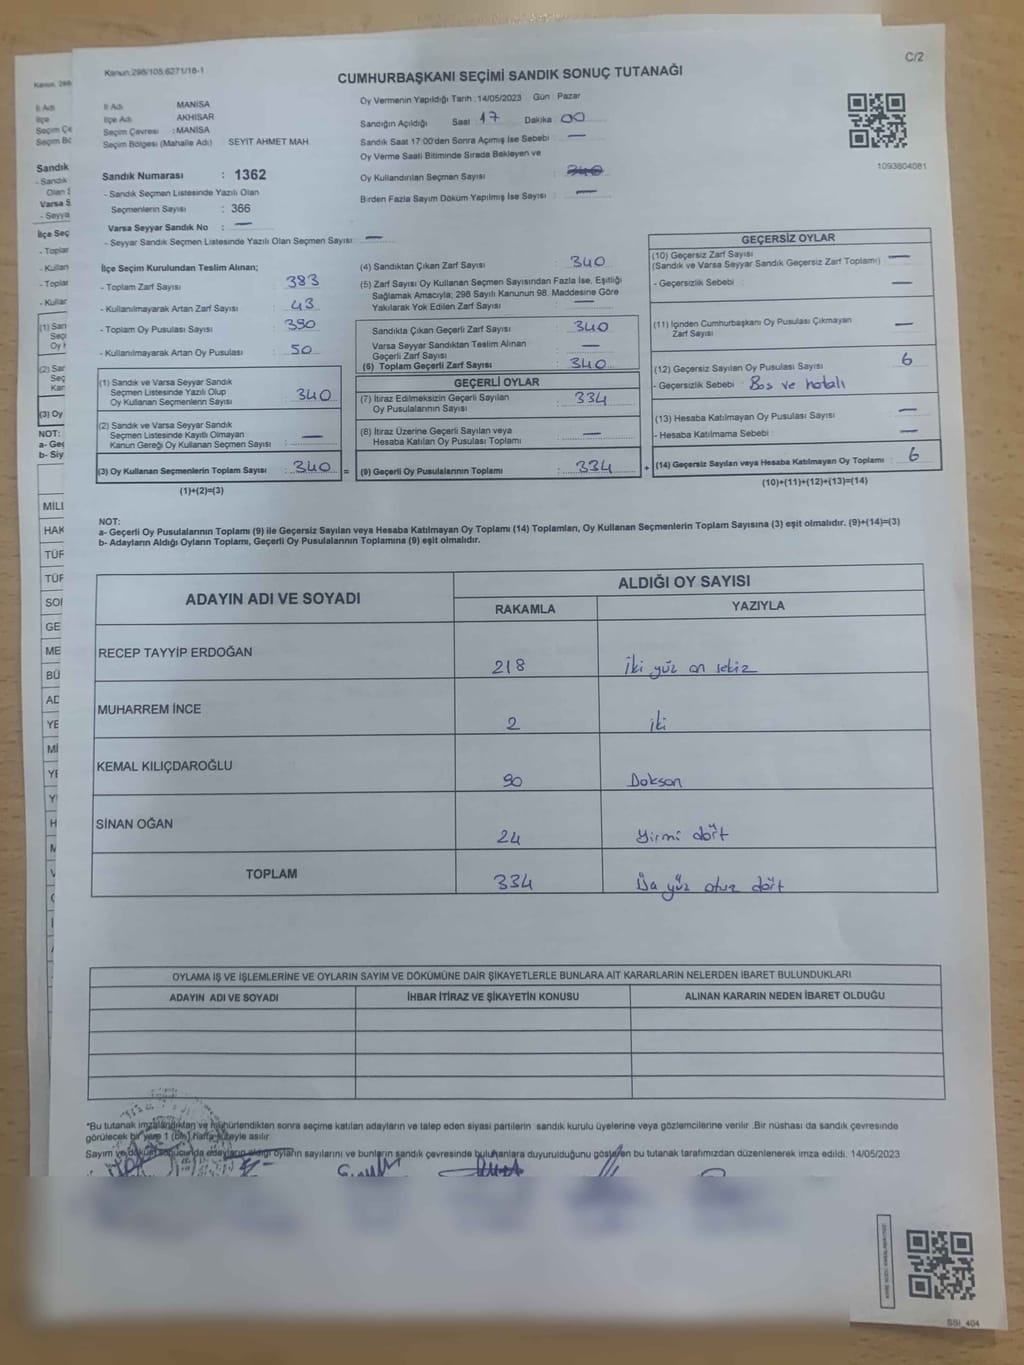 Kanun.298/105,6271/18-1
C/2
CUMHURBAŞKANI SEÇİMİ SANDIK SONUÇ TUTANAĞI
İl Adı MANİSA
İlçe Adı AKHİSAR
Seçim Çevresi : MANİSA
Seçim Bölgesi (Mahalle Adı) SEYIT AHMET MAH.
Sandık Numarası : 1362
- Sandık Seçmen Listesinde Yazılı Olan
Seçmenlerin Sayısı : 366
Varsa Seyyar Sandık No : —
- Seyyar Sandık Seçmen Listesinde Yazılı Olan Seçmen Sayısı : —
Oy Vermenin Yapıldığı Tarih : 14/05/2023 Gün : Pazar
Sandığın Açıldığı Saat 17 Dakika 00
Sandık Saat 17:00'den Sonra Açılmış İse Sebebi : —
Oy Verme Saati Bitiminde Sırada Bekleyen ve
Oy Kullandırılan Seçmen Sayısı : 340
Birden Fazla Sayım Döküm Yapılmış İse Sayısı : —
1093804081
İlçe Seçim Kurulundan Teslim Alınan;
- Toplam Zarf Sayısı : 383
- Kullanılmayarak Artan Zarf Sayısı : 43
- Toplam Oy Pusulası Sayısı : 390
- Kullanılmayarak Artan Oy Pusulası : 50
(1) Sandık ve Varsa Seyyar Sandık
Seçmen Listesinde Yazılı Olup
Oy Kullanan Seçmenlerin Sayısı : 340
(2) Sandık ve Varsa Seyyar Sandık
Seçmen Listesinde Kayıtlı Olmayan
Kanun Gereği Oy Kullanan Seçmen Sayısı : —
(3) Oy Kullanan Seçmenlerin Toplam Sayısı : 340 =
(1)+(2)=(3)
(4) Sandıktan Çıkan Zarf Sayısı : 340
(5) Zarf Sayısı Oy Kullanan Seçmen Sayısından Fazla İse, Eşitliği
Sağlamak Amacıyla; 298 Sayılı Kanunun 98. Maddesine Göre
Yakılarak Yok Edilen Zarf Sayısı : —
Sandıkta Çıkan Geçerli Zarf Sayısı : 340
Varsa Seyyar Sandıktan Teslim Alınan
Geçerli Zarf Sayısı : —
(6) Toplam Geçerli Zarf Sayısı : 340
GEÇERLİ OYLAR
(7) İtiraz Edilmeksizin Geçerli Sayılan
Oy Pusulalarının Sayısı : 334
(8) İtiraz Üzerine Geçerli Sayılan veya
Hesaba Katılan Oy Pusulası Toplamı : —
(9) Geçerli Oy Pusulalarının Toplamı : 334 +
GEÇERSİZ OYLAR
(10) Geçersiz Zarf Sayısı : —
(Sandık ve Varsa Seyyar Sandık Geçersiz Zarf Toplamı)
- Geçersizlik Sebebi : —
(11) İçinden Cumhurbaşkanı Oy Pusulası Çıkmayan : —
Zarf Sayısı
(12) Geçersiz Sayılan Oy Pusulası Sayısı : 6
- Geçersizlik Sebebi : Boş ve hatalı
(13) Hesaba Katılmayan Oy Pusulası Sayısı : —
- Hesaba Katılmama Sebebi : —
(14) Geçersiz Sayılan veya Hesaba Katılmayan Oy Toplamı : 6
(10)+(11)+(12)+(13)=(14)
NOT:
a- Geçerli Oy Pusulalarının Toplamı (9) ile Geçersiz Sayılan veya Hesaba Katılmayan Oy Toplamı (14) Toplamları, Oy Kullanan Seçmenlerin Toplam Sayısına (3) eşit olmalıdır. (9)+(14)=(3)
b- Adayların Aldığı Oyların Toplamı, Geçerli Oy Pusulalarının Toplamına (9) eşit olmalıdır.
ADAYIN ADI VE SOYADI
ALDIĞI OY SAYISI
RAKAMLA YAZIYLA
RECEP TAYYİP ERDOĞAN 218 İki yüz on sekiz
MUHARREM İNCE 2 iki
KEMAL KILIÇDAROĞLU 90 Doksan
SİNAN OĞAN 24 Yirmi dört
TOPLAM 334 Üç yüz otuz dört
OYLAMA İŞ VE İŞLEMLERİNE VE OYLARIN SAYIM VE DÖKÜMÜNE DAİR ŞİKAYETLERLE BUNLARA AİT KARARLARIN NELERDEN İBARET BULUNDUKLARI
ADAYIN ADI VE SOYADI İHBAR İTİRAZ VE ŞİKAYETİN KONUSU ALINAN KARARIN NEDEN İBARET OLDUĞU
*Bu tutanak imzalandıktan ve mühürlendikten sonra seçime katılan adayların ve talep eden siyasi partilerin sandık kurulu üyelerine veya gözlemcilerine verilir .Bir nüshası da sandık çevresinde
görülecek bir yere 1 (bir) hafta süreyle asılır.
Sayım ve döküm sonucunda adayların aldığı oyların sayılarını ve bunların sandık çevresinde bulunanlara duyurulduğunu gösteren bu tutanak tarafımızdan düzenlenerek imza edildi. 14/05/2023
SSI_404